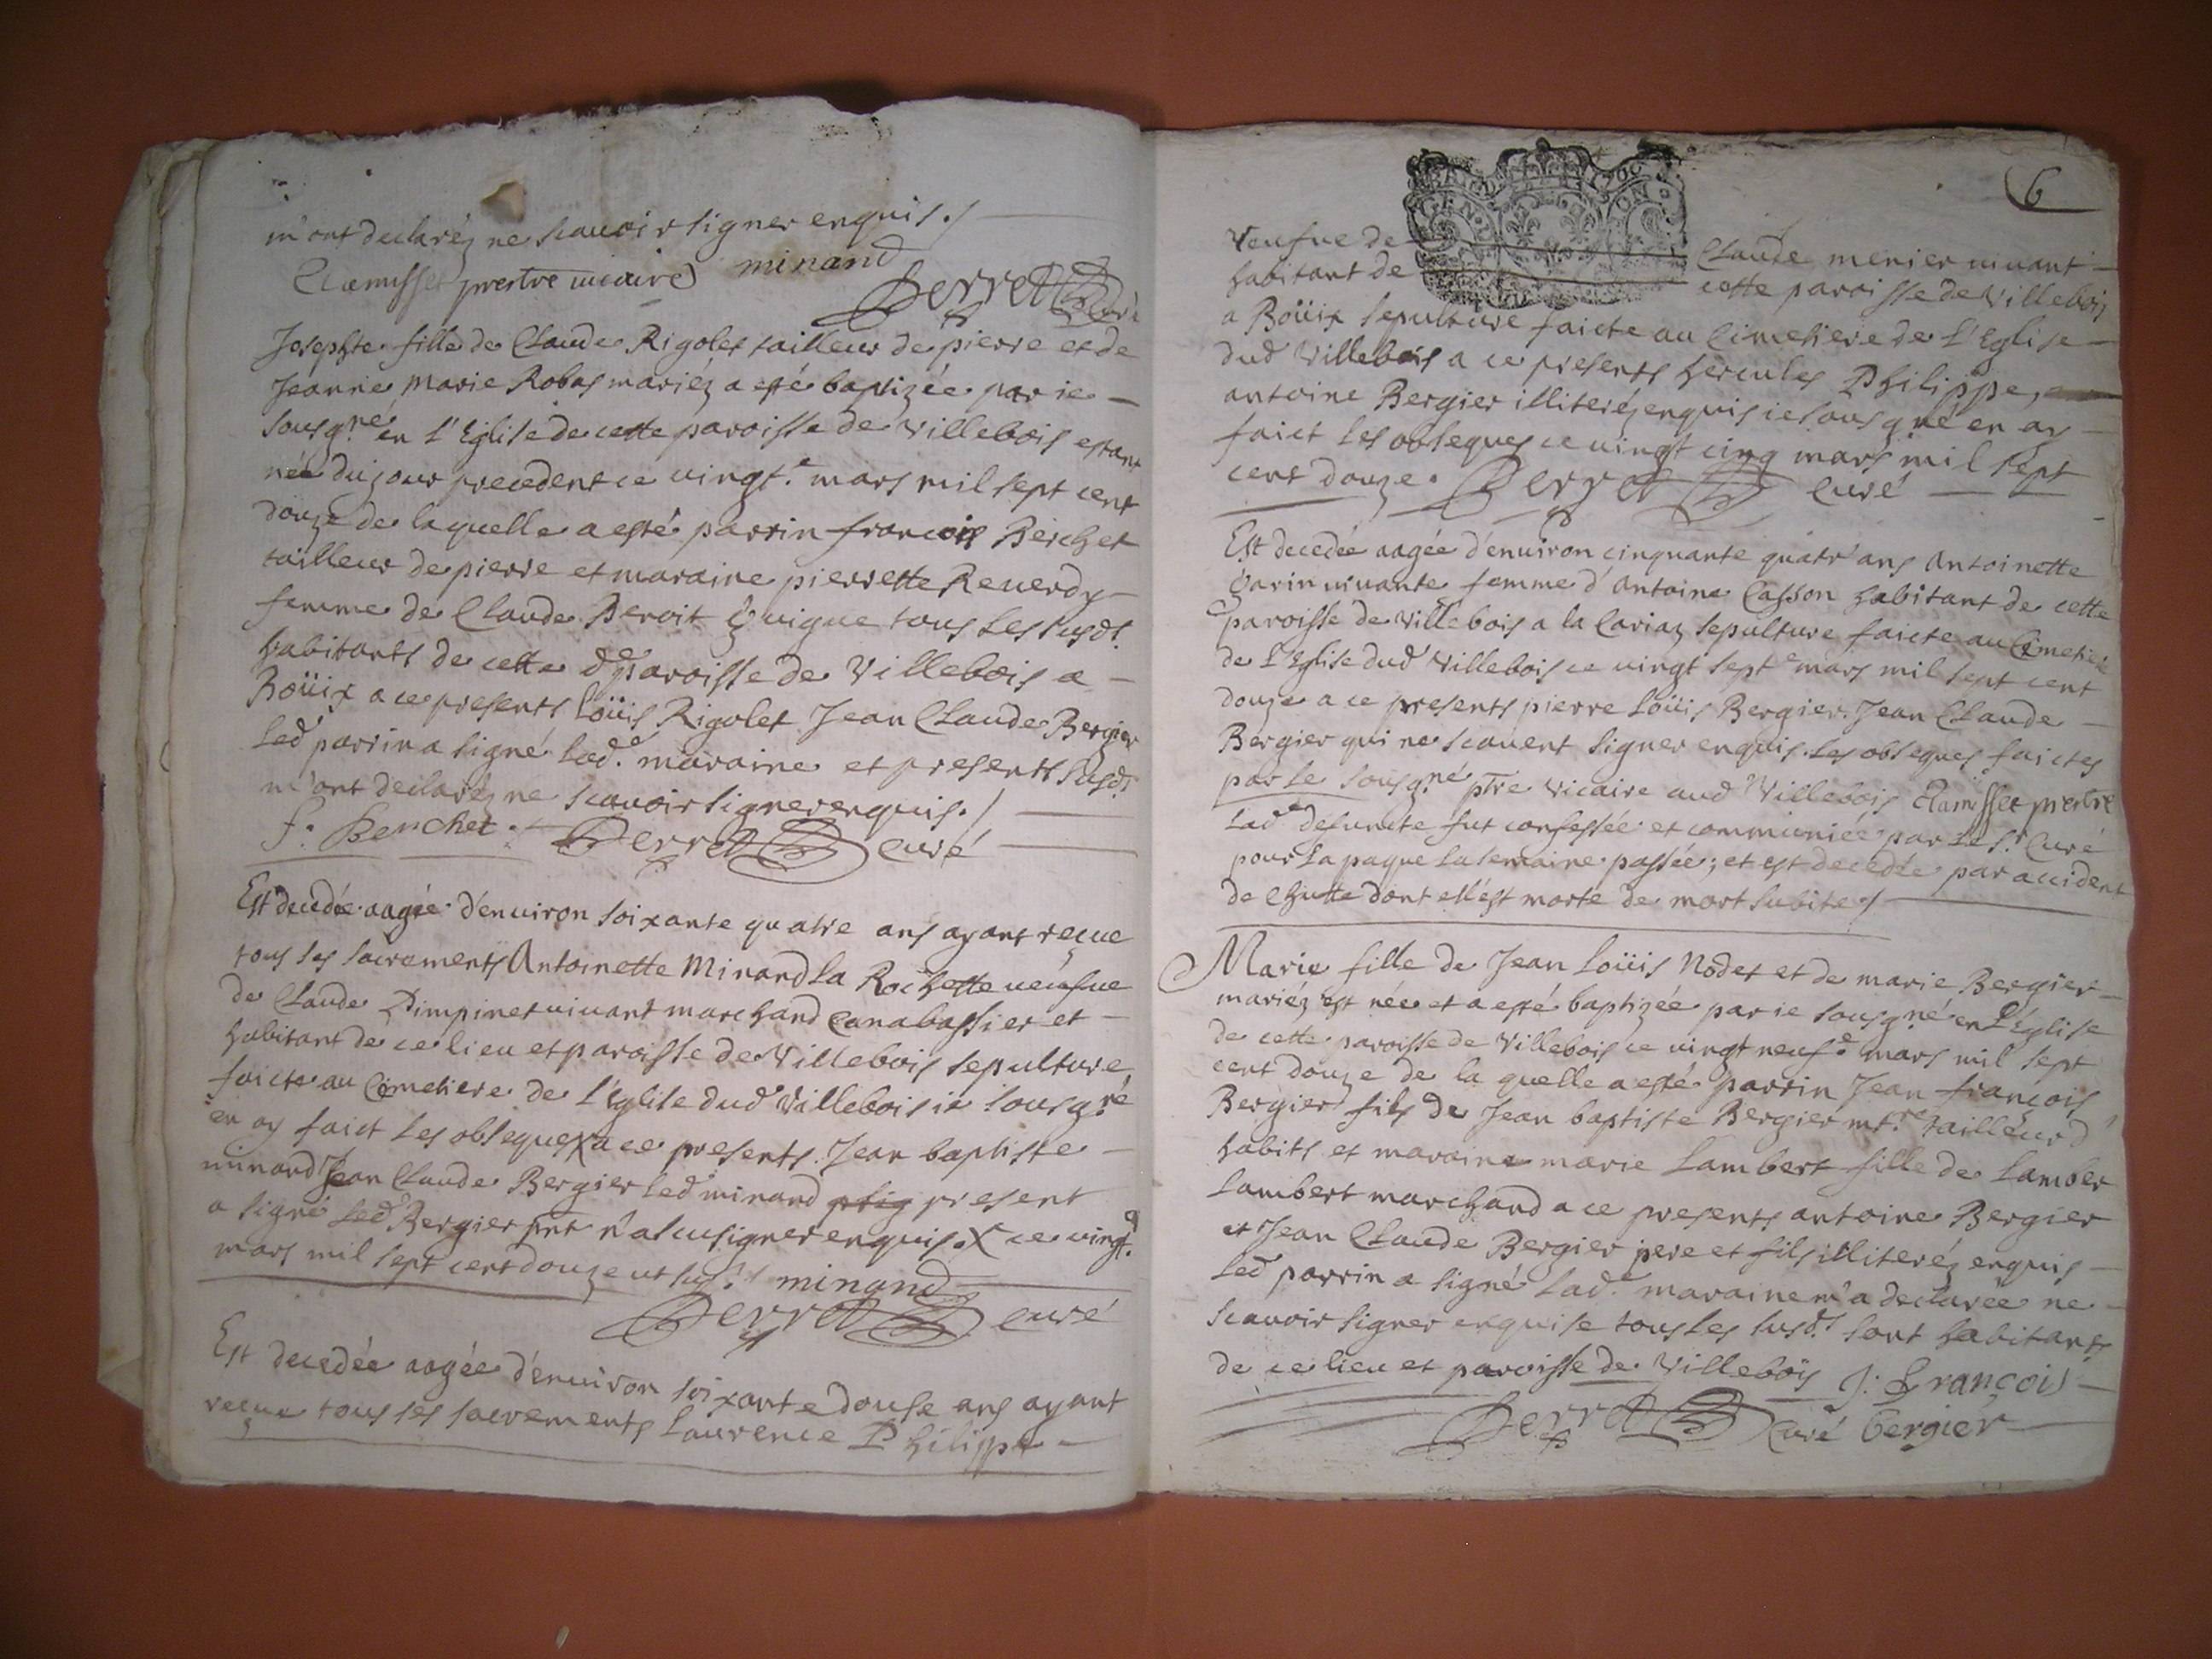 m'ont declaréz ne scauoir signer enquis ./
Clamisset prestre uicaire minand
Perret Curé
Josephte fille de Claude Rigolet tailleur de pierre et de
Jeanne Marie Robas mariéz a esté baptizée par ie
sousg.né en l'Eglise de cette paroisse de Villebois estant
née du jour precedent ce uingt.e mars mil sept cent
douze de laquelle a esté parrin francois Berchet
tailleur de pierre et maraine pierrette Reuerdy
femme de Claude Beroit tous les susd.ts
habitants de cette d.e paroisse de Villebois a
Boüix a ce presents Loüis Rigolet Jean Claude Bergier
Led parrin a signé Lad.e maraine et presents susd.ts
m'ont declaréz ne scauoir signer enquis ./
f. Berchet Perret Curé
Est decedée aagée d'enuiron soixante quatre ans ayant reçue
tous les sacrements Antoinette Minand La Rochette ueufue
de Claude Dimpinet uiuant marchand Canabassier et
habitant de ce lieu et paroisse de Villebois sepulture
faicte au Cimetiere de l'Eglise dud Villebois ie sousg.né
en ay faict les obseques X a ce presents Jean baptiste
minand Jean Claude Bergier led minand present
a signé Led Bergier pnt n'a scu signer enquis . X ce uingt.e
mars mil sept cent douze ut sus ./ minand
Perret curé
Est decedée aagée d'enuiron soixante douse ans ayant
reçue tous ses sacrements Laurence Philippe
6
Veufue de Claude menier uiuant
habitant de cette paroisse de Villebois
a Boüix sepulture faicte au Cimetiere de L'Eglise
dud Villebois a ce presents hercules Philippe,
antoine Bergier illiteréz enquis ie sousg.né en ay
faict les obseques ce uingt cinq mars mil sept
cent douze . Perret Curé
Est decedée aagée d'enuiron cinquante quatr' ans Antoinette
Garin uiuante femme d'Antoine Casson habitant de cette
paroisse de Villebois a la Cariaz sepulture faicte au Cimetiere
de L'Eglise dud Villebois ce uingt sept.e mars mil sept cent
douze a ce presents pierre Loüis Bergier Jean Claude
Bergier qui ne scauent signer enquis les obseques faictes
par le sousg.né ptre Vicaire aud Villebois Clamisset prestre
Lad.e defuncte fut confessée et communiée par le S.r Curé
pour la paque la semaine passée; et est decedée par accident
de chutte dont ell'est morte de mort subite ./
Marie fille de Jean Loüis Nodet et de marie Bergier
mariéz est née et a esté baptizée par ie sousg.né en L'Eglise
de cette paroisse de Villebois ce uingt neuf.e mars mil sept
cent douze de la quelle a esté parrin Jean francois
Bergier fils de Jean baptiste Bergier mt.re tailleur d'
habits et maraine marie Lambert fille de Lamber
Lambert marchand a ce presents antoine Bergier
et Jean Claude Bergier pere et fils illiteréz enquis
Led parrin a signé Lad.e maraine m'a declarée ne
scauoir signer enquise tous les susd.ts sont habitants
de ce lieu et paroisse de Villebois J: François
Perret Curé bergier